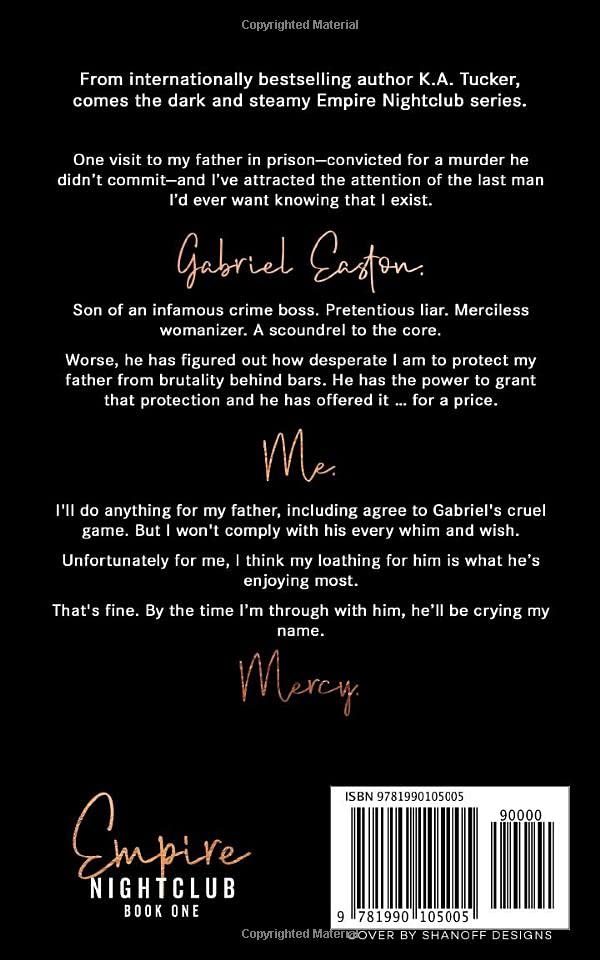 Copyrighted Material
From internationally bestselling author K.A. Tucker,
comes the dark and steamy Empire Nightclub series.
One visit to my father in prison—convicted for a murder he
didn't commit—and I've attracted the attention of the last man
I'd ever want knowing that I exist.
Gabriel Easton.
Son of an infamous crime boss. Pretentious liar. Merciless
womanizer. A scoundrel to the core.
Worse, he has figured out how desperate I am to protect my
father from brutality behind bars. He has the power to grant
that protection and he has offered it ... for a price.
Me.
I'll do anything for my father, including agree to Gabriel's cruel
game. But I won't comply with his every whim and wish.
Unfortunately for me, I think my loathing for him is what he's
enjoying most.
That's fine. By the time I'm through with him, he'll be crying my
name.
Mercy.
Empire
NIGHTCLUB
BOOK ONE
ISBN 9781990105005
90000
9 781990 105005
COVER BY SHANOFF DESIGNS
Copyrighted Material